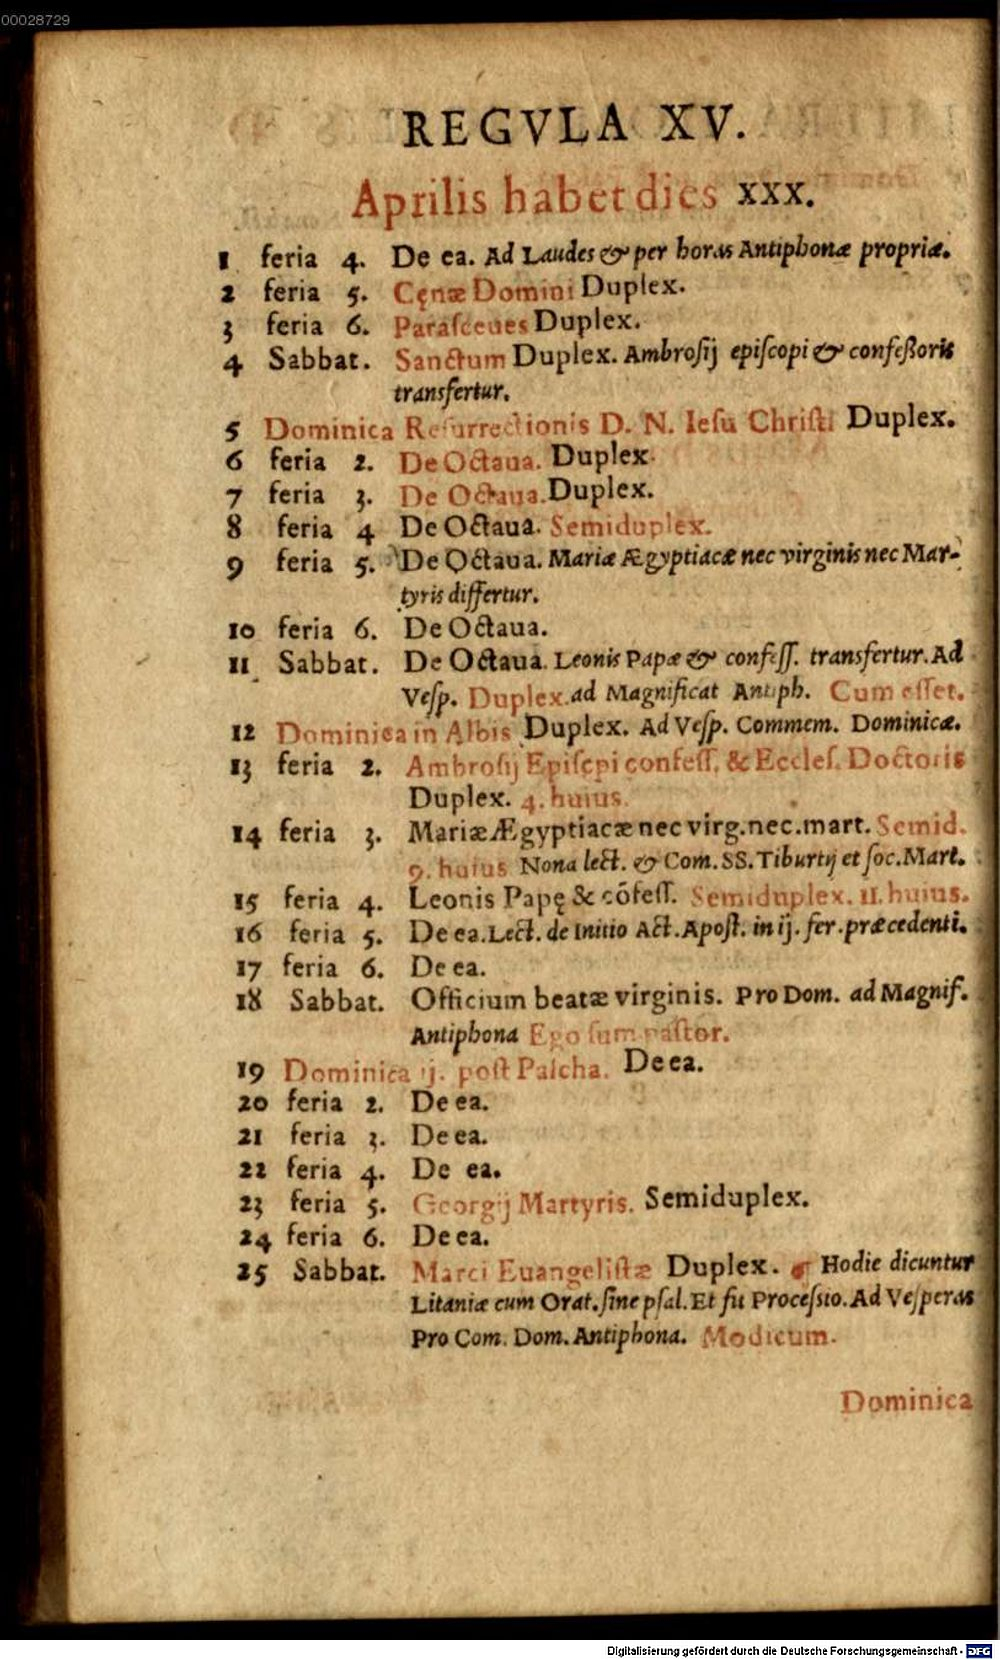 00028729
REGVLA XV.
Aprilis habet dies XXX.
1 feria 4. De ea. Ad Laudes & per horas Antiphonæ propriæ.
2 feria 5. Cęnæ Domini Duplex.
3 feria 6. Paraſceues Duplex.
4 Sabbat. Sanctum Duplex. Ambroſij epiſcopi & confeßoris
transfertur.
5 Dominica Reſurrectionis D. N. Ieſu Chriſti Duplex.
6 feria 2. De Octaua. Duplex.
7 feria 3. De Octaua. Duplex.
8 feria 4 De Octaua. Semiduplex.
9 feria 5. De Octaua. Mariæ Ægyptiacæ nec virginis nec Mar-
tyris differtur.
10 feria 6. De Octaua.
11 Sabbat. De Octaua. Leonis Papæ & confeſſ. transfertur. Ad
Veſp. Duplex. ad Magnificat Antiph. Cum eſſet.
12 Dominica in Albis Duplex. Ad Veſp. Commem. Dominicæ.
13 feria 2. Ambroſij Epiſcpi confeſſ. & Eccleſ. Doctoris
Duplex. 4. huius.
14 feria 3. Mariæ Ægyptiacæ nec virg. nec. mart. Semid.
9. huius Nona lect. & Com. SS. Tiburtij et ſoc. Mart.
15 feria 4. Leonis Papę & cõfeſſ. Semiduplex. 11. huius.
16 feria 5. De ea. Lect. de Initio Act. Apoſt. in ij. fer. præcedenti.
17 feria 6. De ea.
18 Sabbat. Officium beatæ virginis. Pro Dom. ad Magnif.
Antiphona Ego ſum paſtor.
19 Dominica ij. poſt Paſcha. De ea.
20 feria 2. De ea.
21 feria 3. De ea.
22 feria 4. De ea.
23 feria 5. Georgij Martyris. Semiduplex.
24 feria 6. De ea.
25 Sabbat. Marci Euangeliſtæ Duplex. Hodie dicuntur
Litaniæ cum Orat. ſine pſal. Et fit Proceſsio. Ad Veſperas
Pro Com. Dom. Antiphona. Modicum.
Dominica
Digitalisierung gefördert durch die Deutsche Forschungsgemeinschaft - DFG